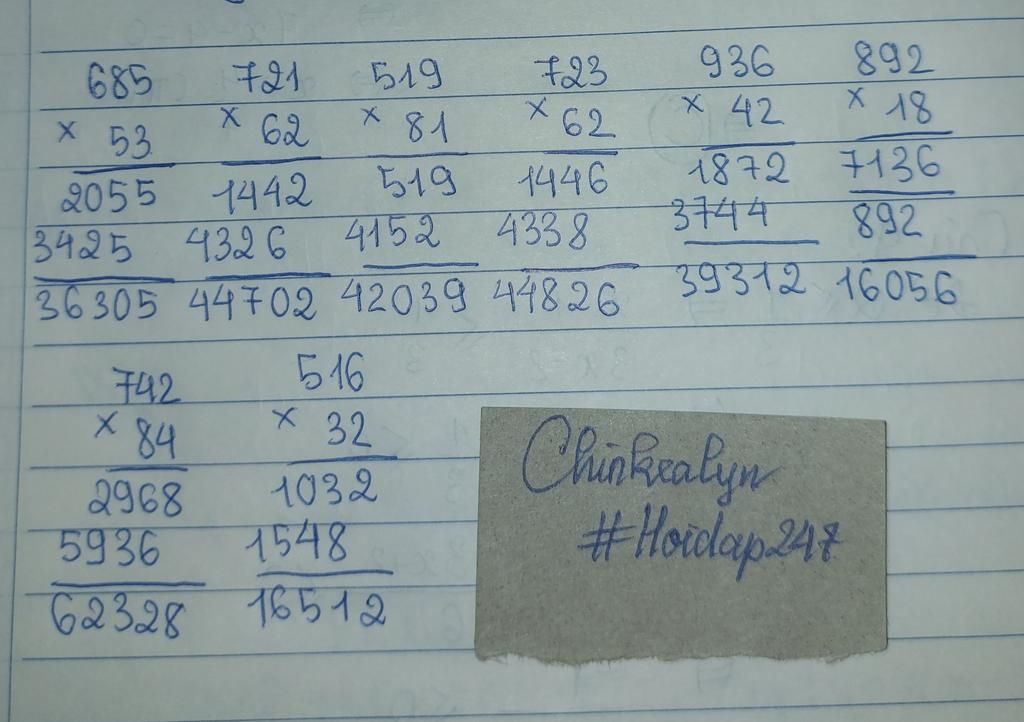 685 721 519 723 936 892
× 53 × 62 × 81 × 62 × 42 × 18
2055 1442 519 1446 1872 7136
3425 4326 4152 4338 3744 892
36305 44702 42039 44826 39312 16056
742 516
× 84 × 32
2968 1032
5936 1548
62328 16512
Chinkealyn
#Hoidap247